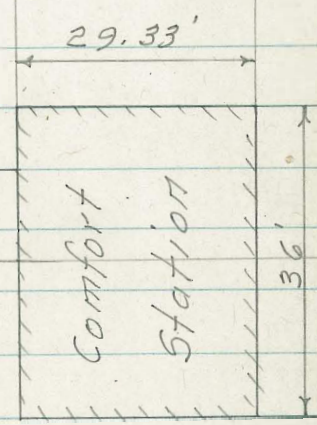 29.33'
Comfort
Station
36'